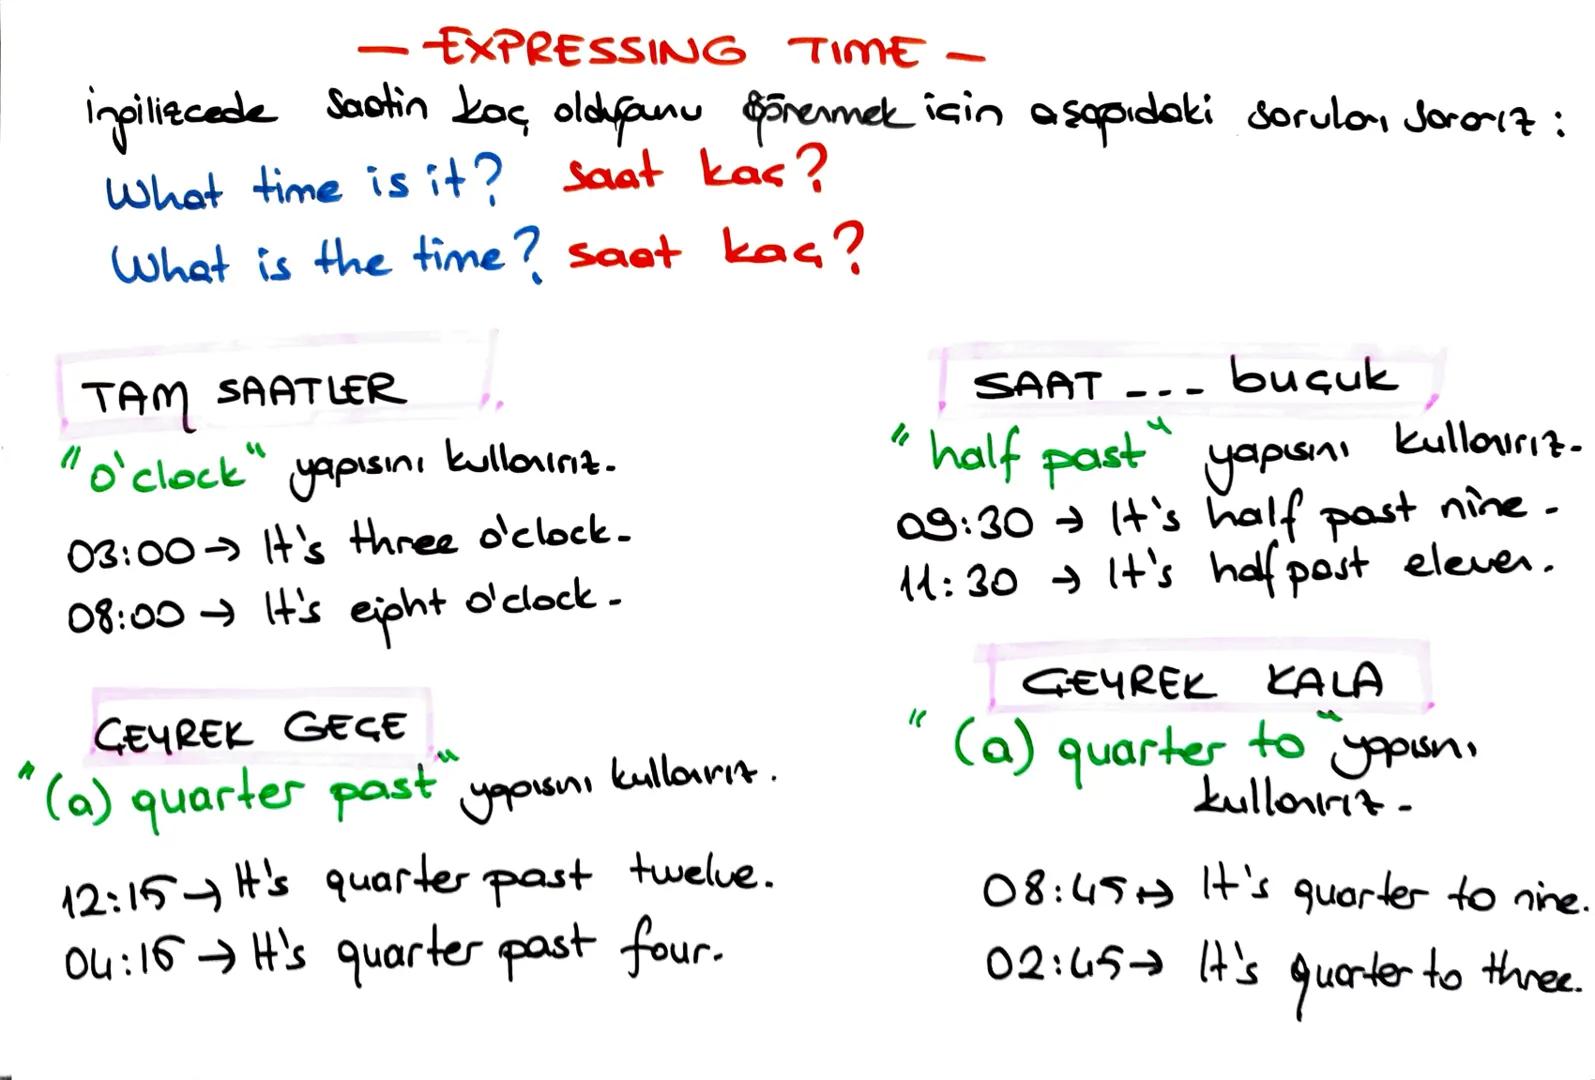 — EXPRESSING TIME —
ingilizcede saatin kaç olduğunu öğrenmek için aşağıdaki soruları sorarız :
What time is it? saat kaç?
What is the time? saat kaç?
TAM SAATLER
"o'clock" yapısını kullanırız.
03:00 → It's three o'clock.
08:00 → It's eight o'clock.
SAAT --- buçuk
"half past" yapısını kullanırız.
09:30 → It's half past nine.
11:30 → It's half past eleven.
ÇEYREK GEÇE
"(a) quarter past" yapısını kullanırız.
12:15 → It's quarter past twelve.
04:15 → It's quarter past four.
ÇEYREK KALA
"(a) quarter to" yapısını
kullanırız.
08:45 → It's quarter to nine.
02:45 → It's quarter to three.